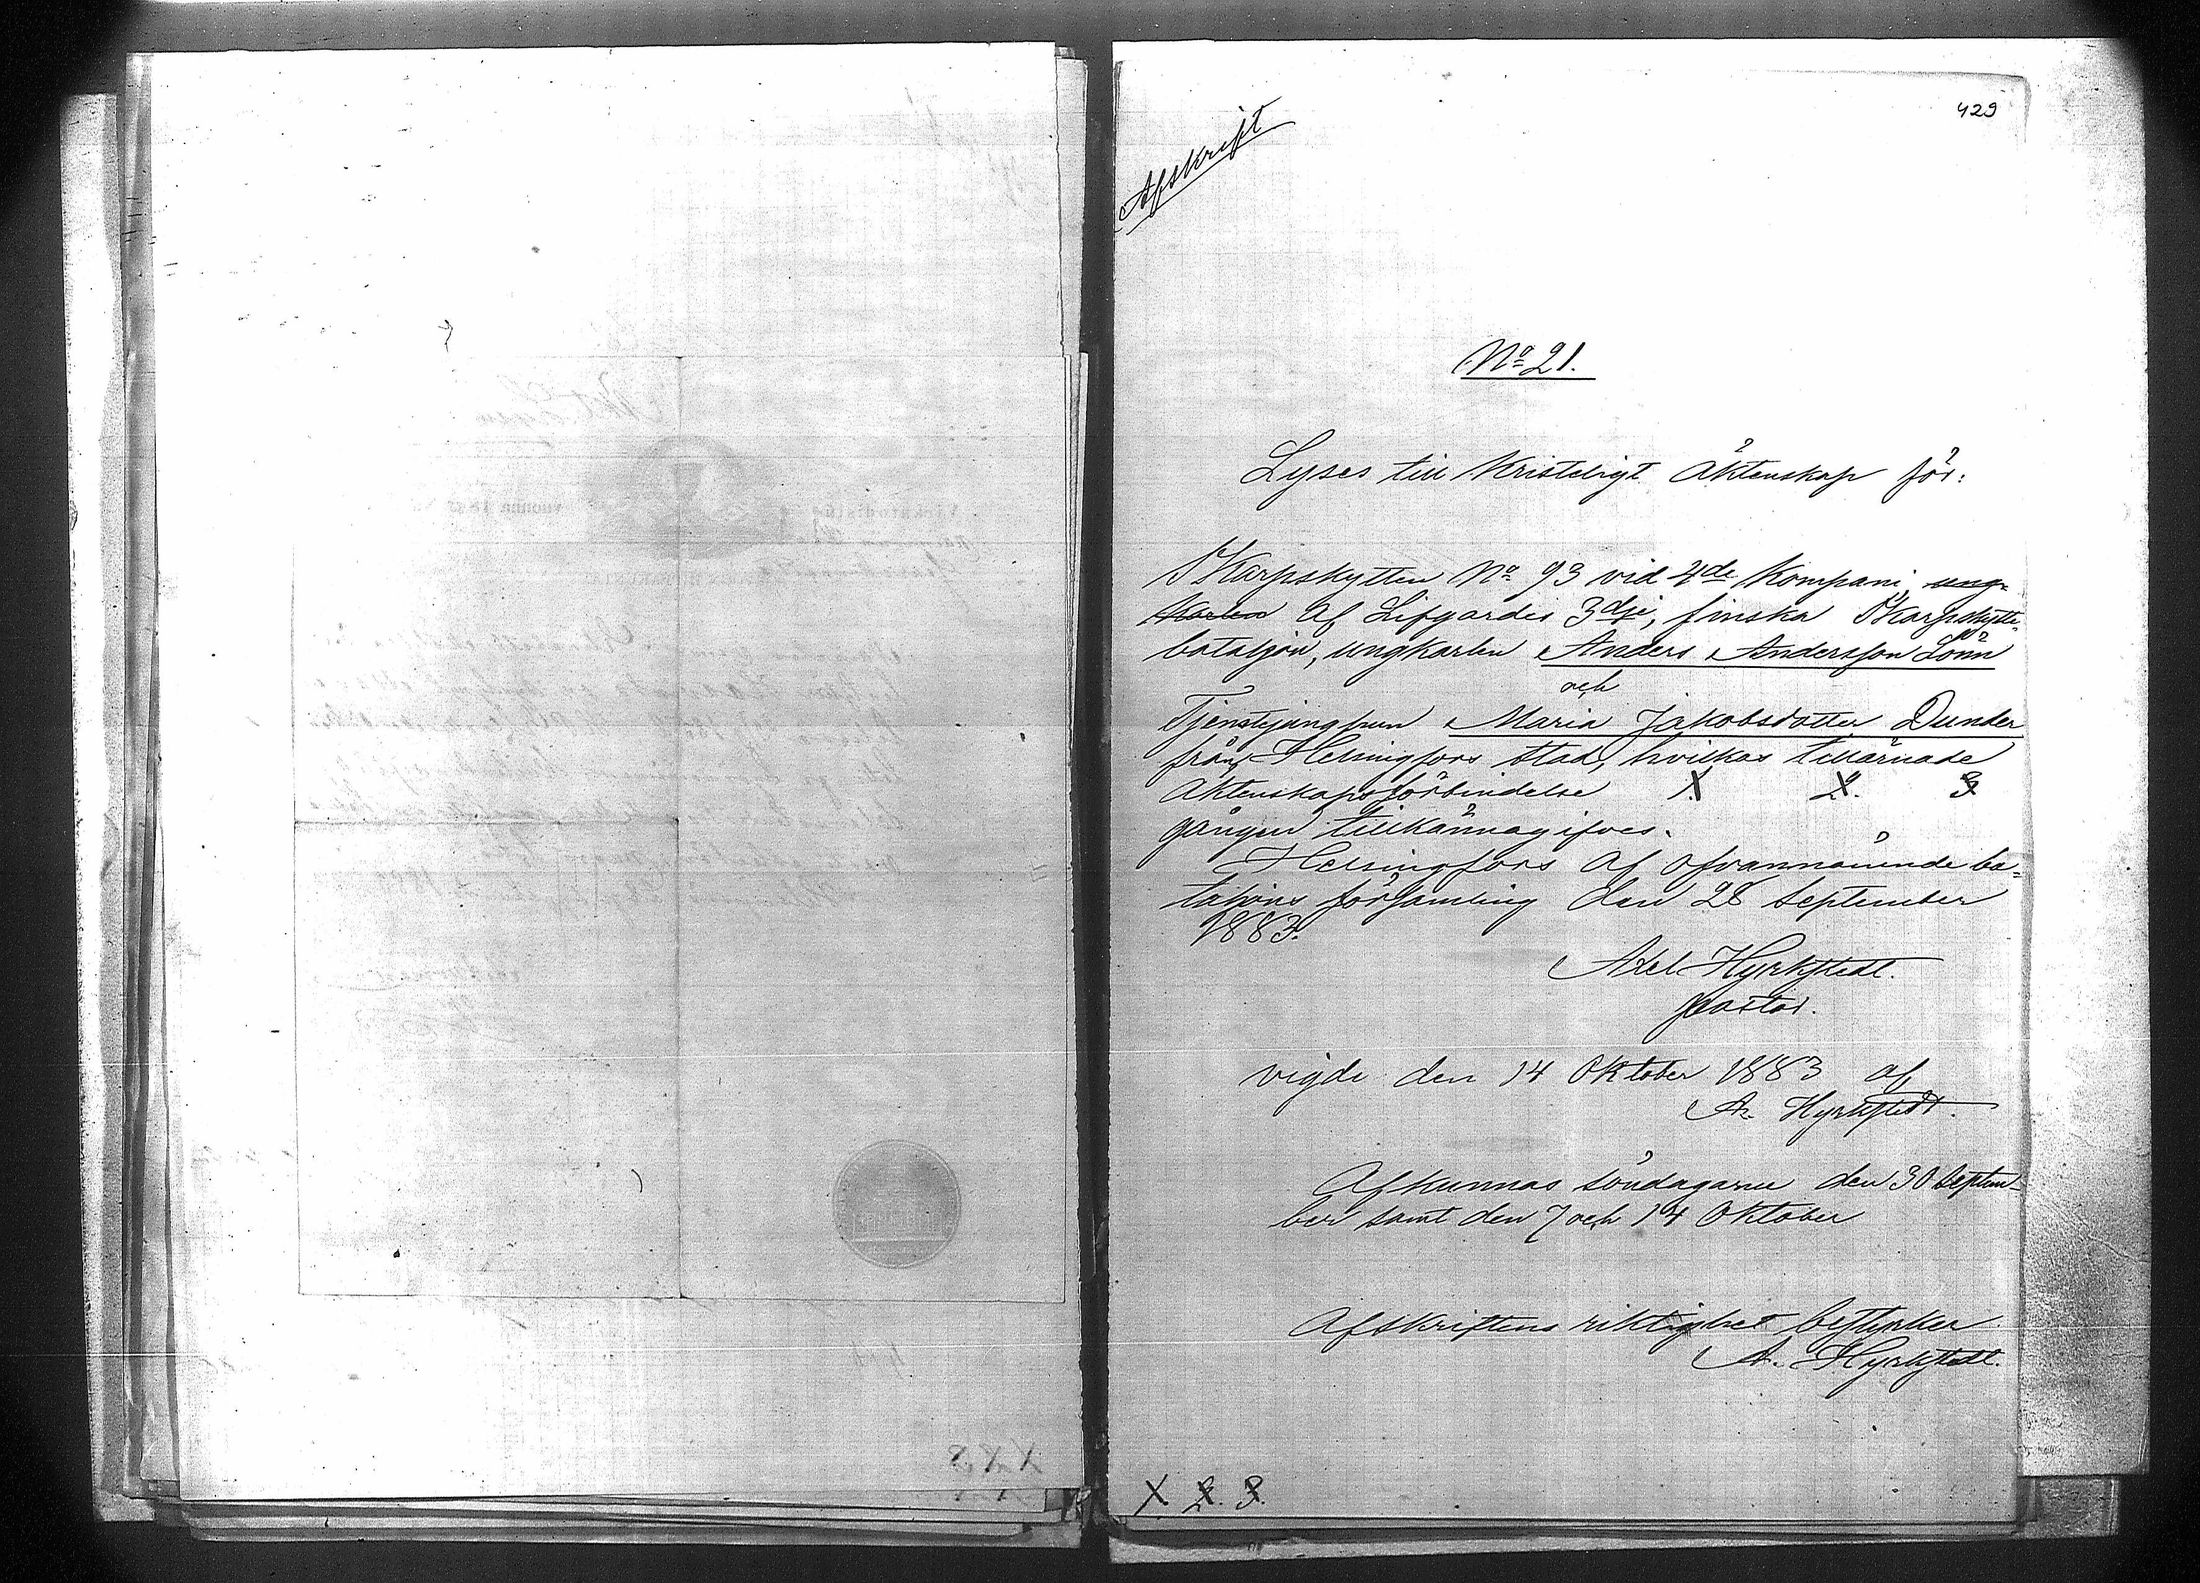 429
Afskrift
No 21.
Lyses till Kristeligt Äktenskap för:
Skarpskytten No 93 vid 4de Kompani, ung-
karlen af Lifgardis 3dje, finska Skarpskytte-
bataljon, ungkarlen Anders Andersson Lönn
och
Tjenstejungfrun Maria Jakobsdotter Dunder
från Helsingfors stad, hvilkas tillärnade
Äktenskapsförbindelse 1. 2. 3
gången tillkännagifves.
Helsingfors af ofvannämnde ba-
taljons församling den 28 September
1883.
Axel Hyrkstedt.
pastor.
vigde den 14 Oktober 1883 af
A. Hyrkstedt.
Afkunnas söndagarne den 30 Septem-
ber samt den 7 och 14 Oktober
Afskriftens riktighet bestyrker
A. Hyrkstedt.
1. 2. 3.